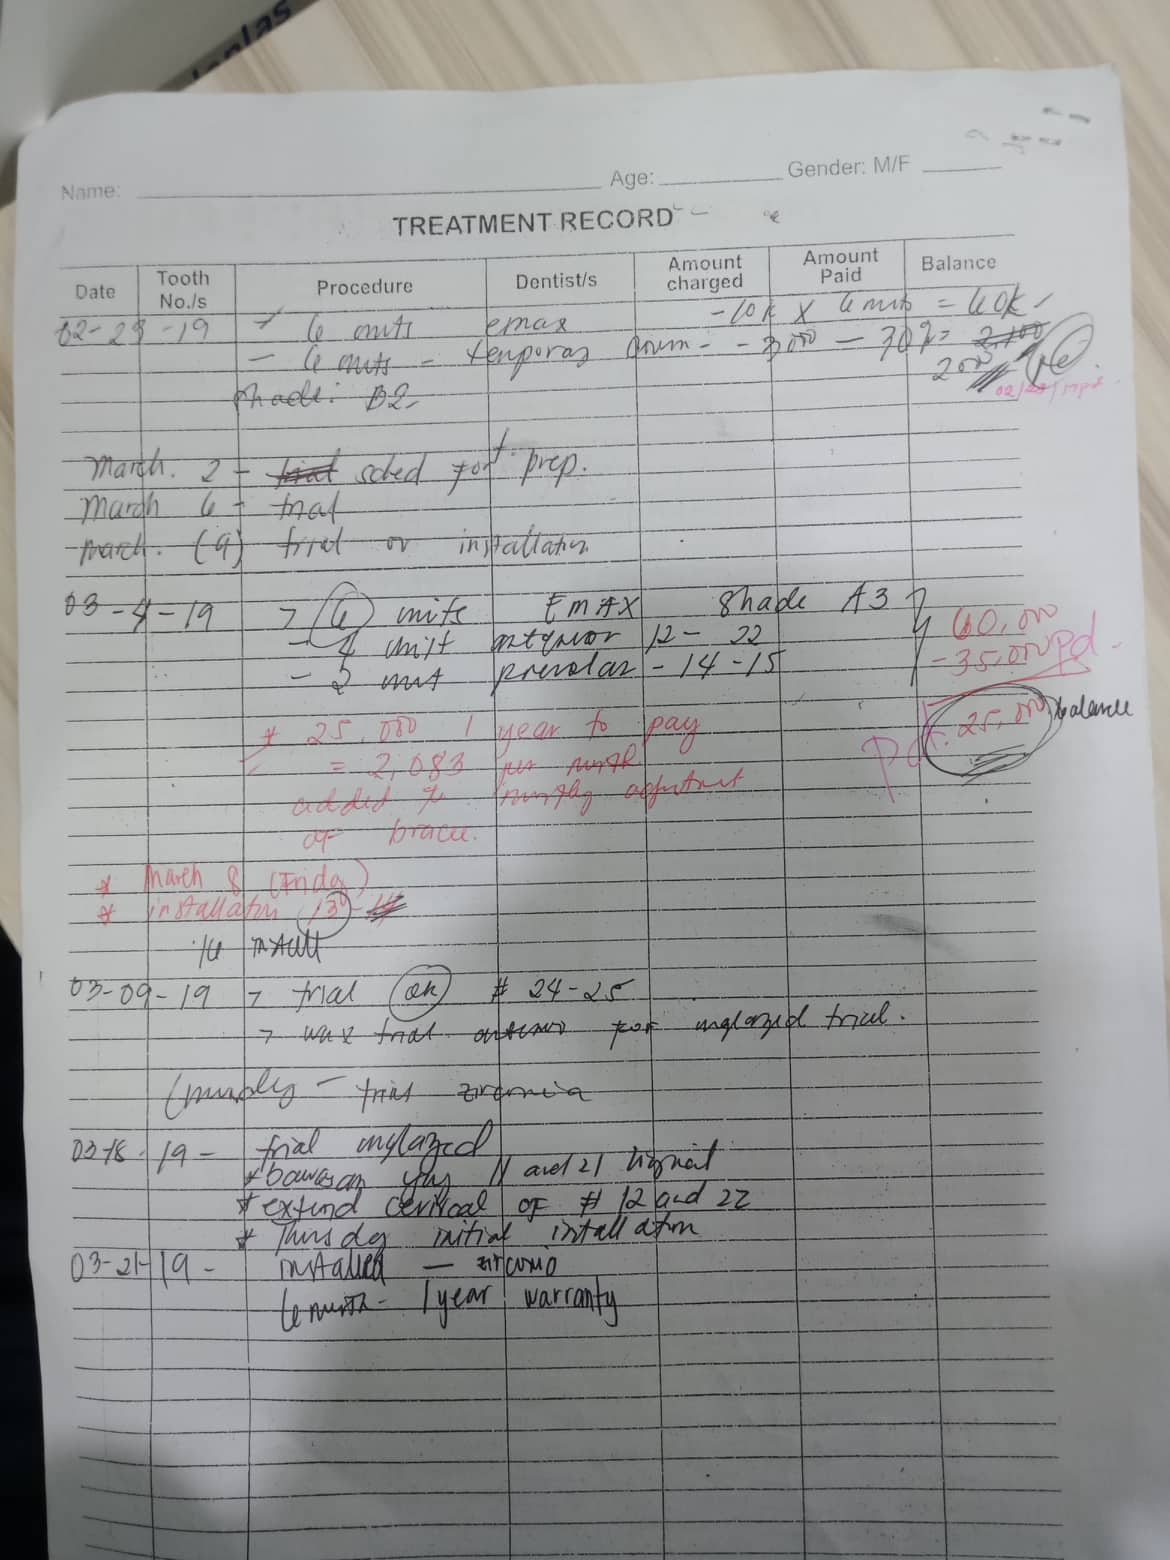 Name: Age: Gender: M/F
TREATMENT RECORD
Date Tooth No./s Procedure Dentist/s Amount charged Amount Paid Balance
-19 6 units emax -10k X 6 units = 60k
- 6 units - temporary - 70% =
shade: B2
March. 2 - trial sched for prep.
March 6 - trial
March. (9) trial or installation
03-4-19 > 6 units EMAX Shade A3
- 4 unit anterior 12 - 22 60,000
- 2 unit premolar - 14-15 - 35,000 pd.
* 25,000 1 year to pay 25,000 balance
= 2,083 per month
added to monthly adjustment
of braces.
* March 8 (Friday)
* installation 13
03-09-19 > trial ok # 24-25
> wax trial anterior for unglazed trial.
- trial zirconia
03-18-19 - trial unglazed
* bawasan 11 and 21
* extend cervical of # 12 and 22
* Thursday initial installation
03-21-19 - installed -
6 month - 1 year warranty